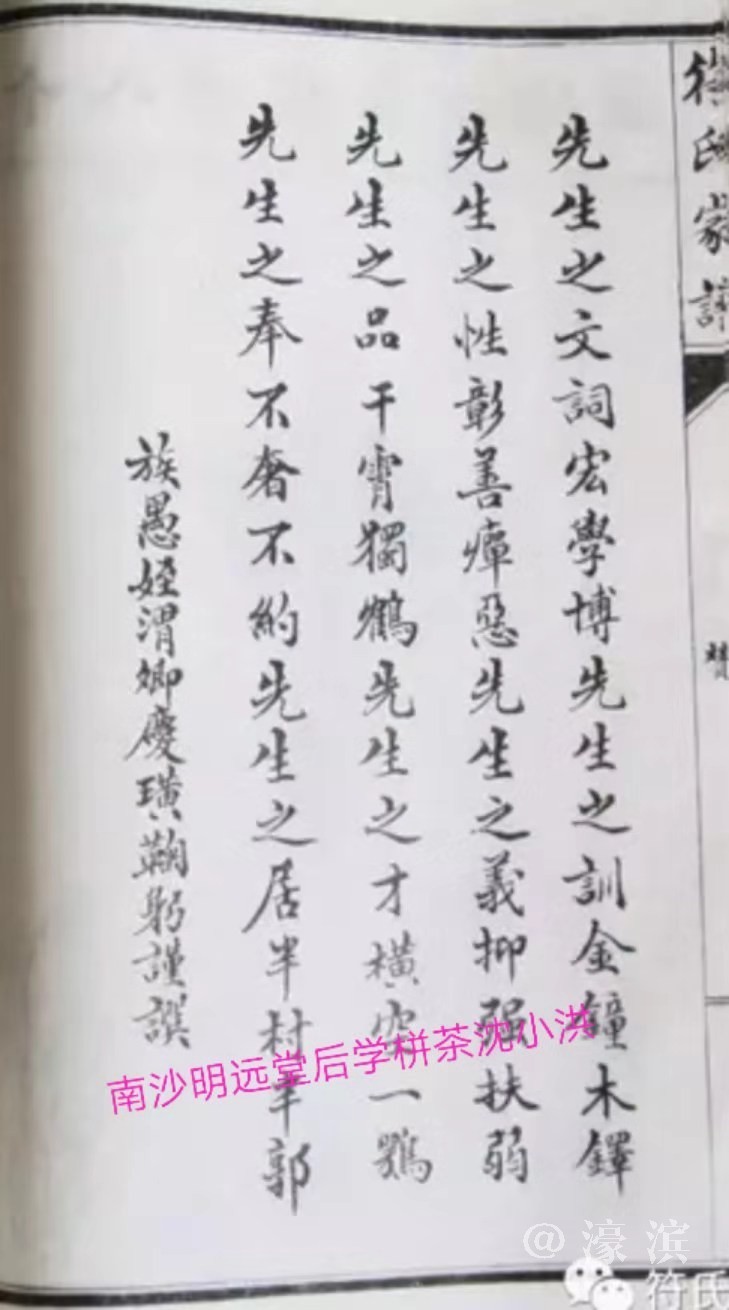 符氏家譜
贊
先生之文詞宏學博先生之訓金鐘木鐸
先生之性彰善癉惡先生之義抑强扶弱
先生之品干霄獨鶴先生之才橫空一鶚
先生之奉不奢不約先生之居半村半郭
族愚姪渭卿慶璜鞠躬謹譔
南沙明远堂后学栟茶沈小洪
@濠滨
符氏